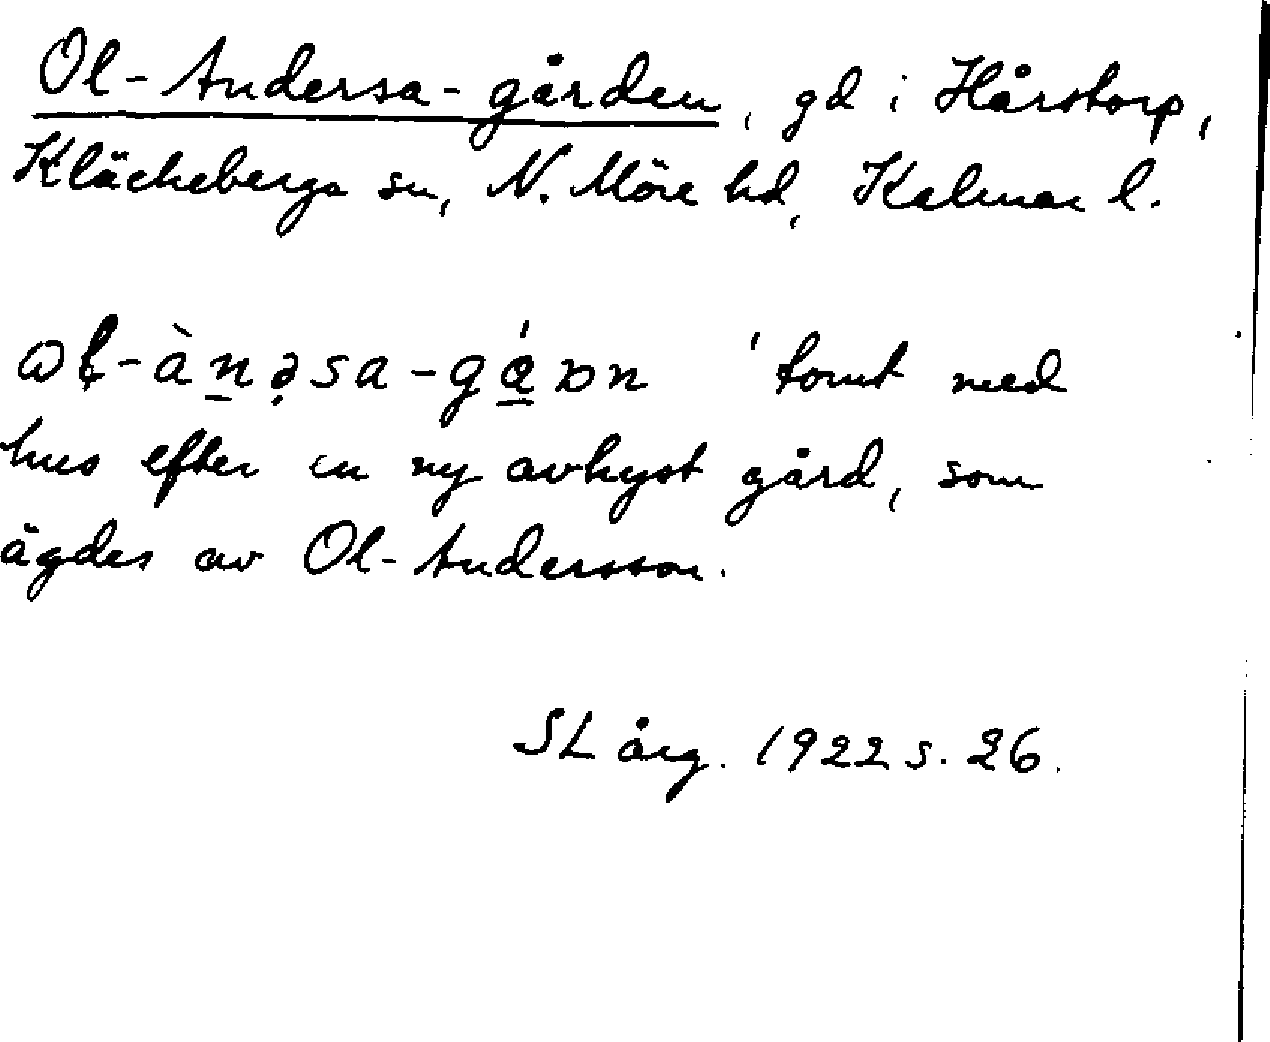 Ol-Andersa-gården, gd i Hårstorp,
Kläckeberga sn, N. Möre hd, Kalmar l.
ɷł-àn̲ə̣sa-gá̲ɒn 'tomt med
hus efter en ny avhyst gård, som
ägdes av Ol-Andersson.
SL årg. 1922 s. 26.